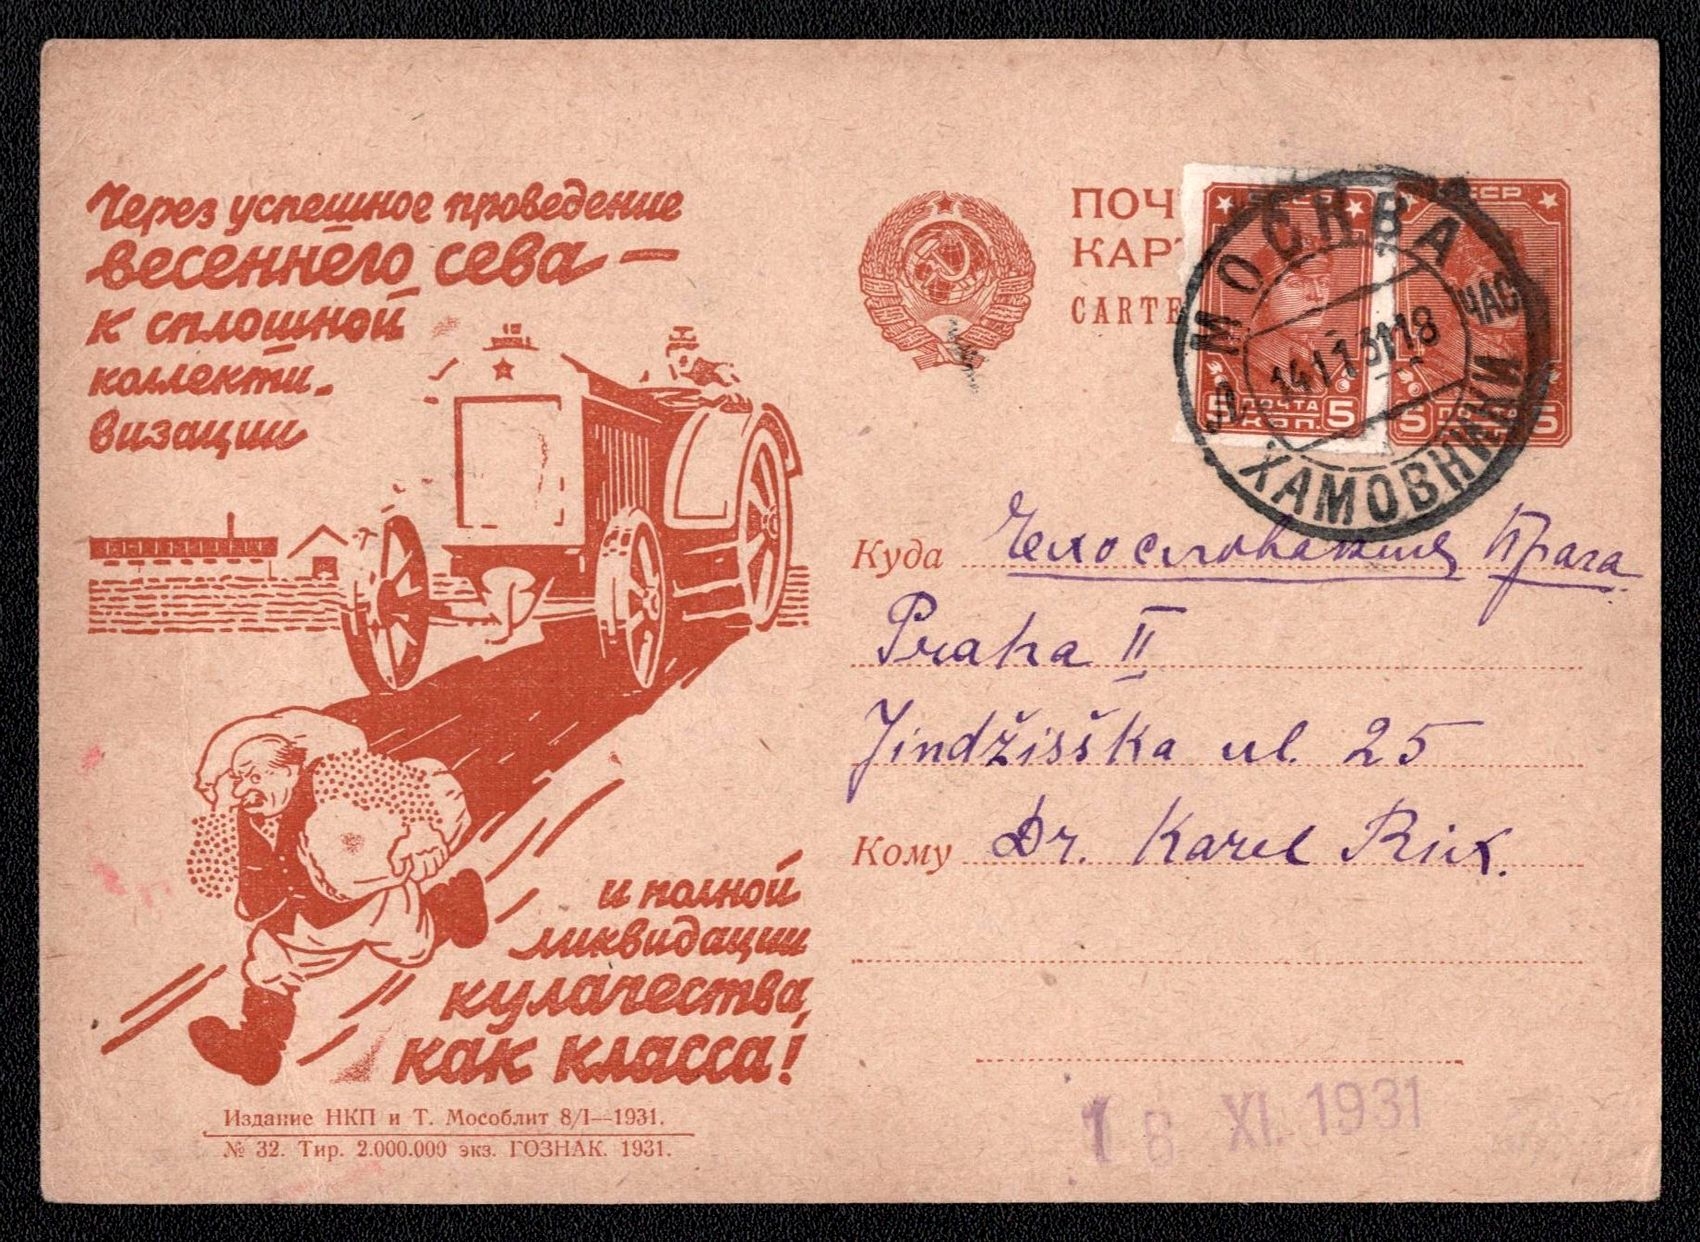 Через успешное проведение
весеннего сева —
к сплошной
коллекти-
визации
и полной
ликвидации
кулачества,
как класса!
Издание НКП и Т. Мособлит 8/I—1931.
№ 32. Тир. 2.000.000 экз. ГОЗНАК. 1931.
ПОЧ
КАР
CARTE
МОСКВА
ЧАС
ХАМОВНИКИ
5 ПОЧТА 5
КОП.
Куда Чехословакия Прага
Praha II
Jindžisška ul. 25
Кому Dr. Karel Rix.
18 XI. 1931